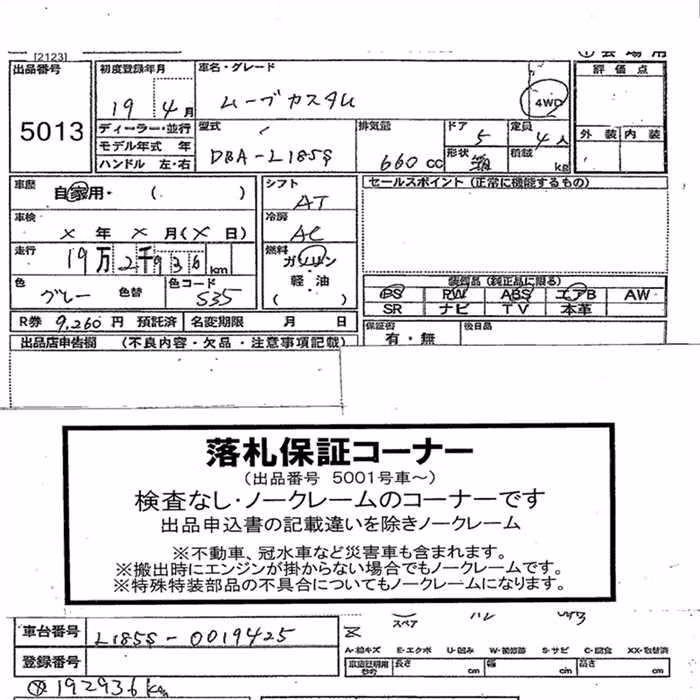 [2123]
①会場用
出品番号 5013
初度登録年月 19 4月
車名・グレード ムーブカスタム
4WD
評価点
外装 内装
ディーラー・並行
モデル年式 年
ハンドル 左・右
型式 DBA-L185S
排気量 660cc
ドア 5
定員 4人
形状 箱
積載 kg
車歴 自家用・( )
シフト AT
セールスポイント (正常に機能するもの)
車検 × 年 × 月(× 日)
冷房 AC
走行 19万2千936km
燃料 ガソリン
軽・油
( )
色 グレー 色替
色コード S35
装備品 (純正品に限る)
PS PW ABS エアB AW
SR ナビ TV 本革
R券 9,260円 預託済
名変期限 月 日
保証書 有・無
後日品
出品店申告欄 (不良内容・欠品・注意事項記載)
落札保証コーナー
(出品番号 5001号車～)
検査なし・ノークレームのコーナーです
出品申込書の記載違いを除きノークレーム
※不動車、冠水車など災害車も含まれます。
※搬出時にエンジンが掛からない場合でもノークレームです。
※特殊特装部品の不具合についてもノークレームになります。
車台番号 L185S-0019425
スペア
A-線キズ E-エクボ U-凹み W-補修跡 S-サビ C-腐食 XX-取替済
登録番号
車庫証明用参考 長さ cm 幅 cm 高さ cm
192936km